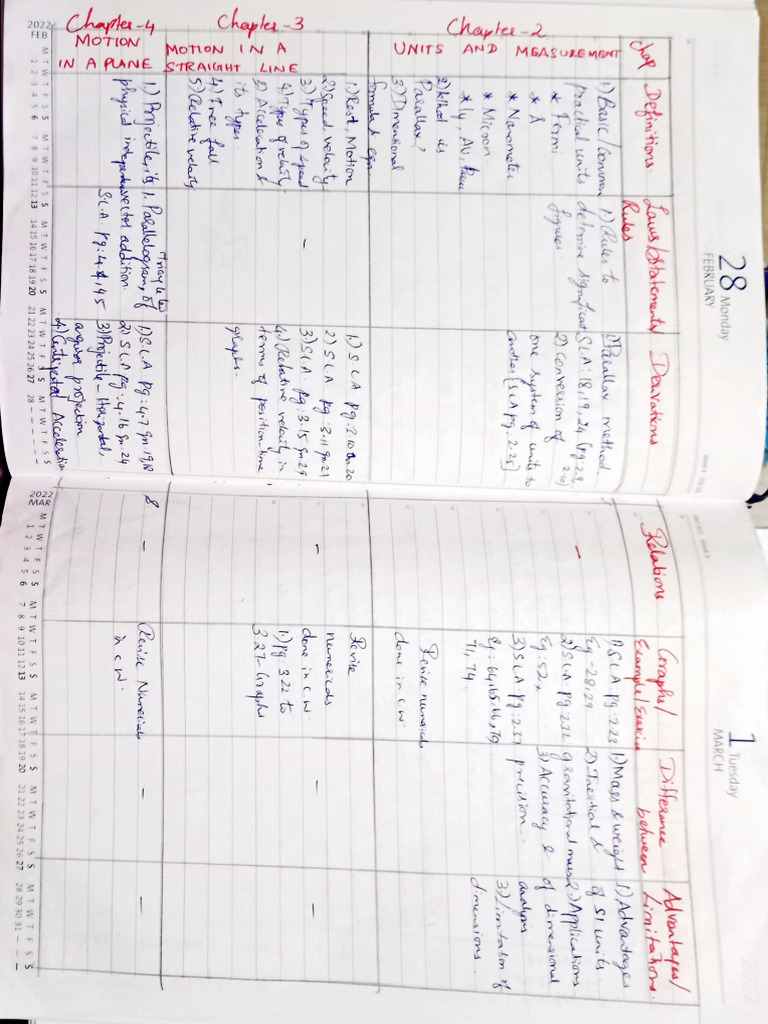 28 Monday
FEBRUARY
Chap
Definitions
Laws/Statements/
Rules
Derivations
Chapter-2
UNITS AND MEASUREMENT
1) Basic/Common
practical units
* Fermi
* Å
* Nanometer
* Micron
* ly, Au,
2) What is
Parallax?
3) Dimensional
formula & eqn
1) Rules to
determine significant
figures.
1) Parallax method
S.L.A: 18,19,24 (pg:2.9,
2.10)
2) Conversion of
one system of units to
another [SLA pg.2.25]
Chapter-3
MOTION IN A
STRAIGHT LINE
1) Rest, Motion
2) Speed, velocity
3) Types of speed
4) Types of velocity
5) Acceleration &
its types
4) Free fall
5) Relative velocity
-
1) S.L.A pg:3.10 Qn 20
2) S.L.A pg:3.11 Qn 21
3) S.L.A. pg:3.15 Qn 29
4) Relative velocity in
terms of position time
graphs.
Chapter-4
MOTION
IN A PLANE
1) Projectile, it's
physical independence
Triangle law
1. Parallelogram, of
vector addition.
S.L.A pg:4.4, 4.5
1) S.L.A pg:4.7 Qn 19,18
2) S.L.A pg:4.16 Qn 24
3) Projectile - Horizontal,
angular projection
4) Centripetal Acceleration
2022
FEB
M T W T F S S M T W T F S S M T W T F S S M T W T F S S M T W T F S S
1 2 3 4 5 6 7 8 9 10 11 12 13 14 15 16 17 18 19 20 21 22 23 24 25 26 27 28 - - - - - -
1 Tuesday
MARCH
Relations
Graphs/
Example/Exercise
Difference
between
Advantages/
Limitations.
-
1) S.L.A pg:2.23
Eg-28,29
2) S.L.A. pg:2.32
Eg:52,
3) S.L.A. pg:2.37
Eg:64,65,66,70
71,74.
Revise numericals
done in c.w.
1) Mass & weight
2) Inertial &
gravitational mass
3) Accuracy &
precision.
1) Advantages
of SI units
2) Applications
of dimensional
analysis
3) Limitation of
dimensions.
-
Revise
numericals
done in c.w.
1) pg:3.22 to
3.27-Graphs
-
-
8
-
Revise Numericals
in c.w.
-
-
2022
MAR
M T W T F S S M T W T F S S M T W T F S S M T W T F S S M T W T F S S
1 2 3 4 5 6 7 8 9 10 11 12 13 14 15 16 17 18 19 20 21 22 23 24 25 26 27 28 29 30 31 - - -